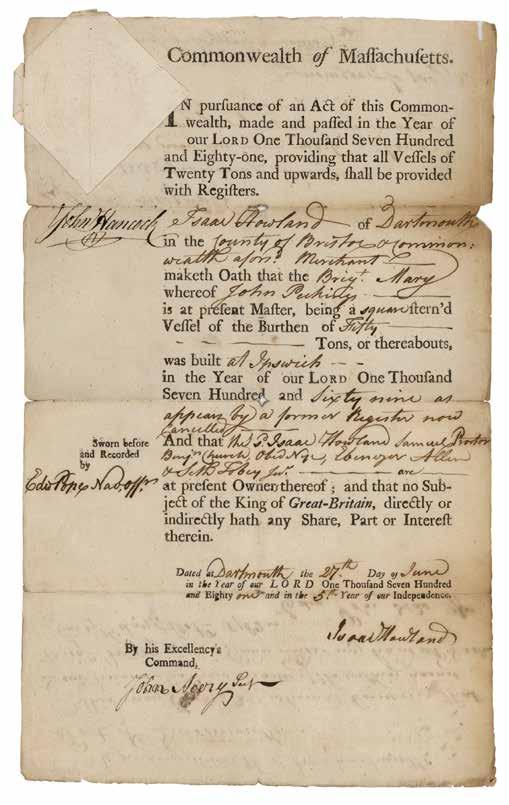 Commonwealth of Massachusetts.
IN pursuance of an Act of this Common-
wealth, made and passed in the Year of
our LORD One Thousand Seven Hundred
and Eighty-one, providing that all Vessels of
Twenty Tons and upwards, shall be provided
with Registers.
John Hancock
Isaac Howland of Dartmouth
in the County of Bristol & Common:
wealth afors.d Merchant
maketh Oath that the Brig.t Mary
whereof John
is at present Master, being a square stern'd
Vessel of the Burthen of Fifty
Tons, or thereabouts,
was built at Ipswich
in the Year of our LORD One Thousand
Seven Hundred and Sixty nine as
appears by a former Register now
Cancelled
And that the s.d Isaac Howland Samuel Proctor
Benj.n Church, Obed Nye, Ebenezer Allen
& Seth Tobey Jun.r are
at present Owners thereof; and that no Sub-
ject of the King of Great-Britain, directly or
indirectly hath any Share, Part or Interest
therein.
Sworn before
and Recorded
by
Edw Pope Nav. Off.r
Dated at Dartmouth the 27th Day of June
in the Year of our LORD One Thousand Seven Hundred
and Eighty one and in the 5th Year of our Independence.
Isaac Howland
By his Excellency's
Command,
John Avery Sec.y